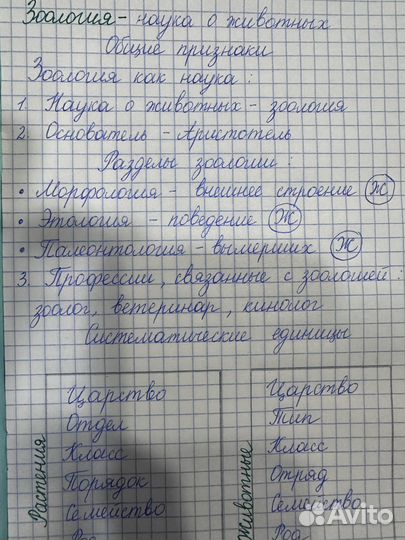 Зоология - наука о животных
Общие признаки
Зоология как наука:
1. Наука о животных - зоология
2. Основатель - Аристотель
Разделы зоологии:
• Морфология - внешнее строение Ж
• Этология - поведение Ж
• Палеонтология - вымерших Ж
3. Профессии, связанные с зоологией:
зоолог, ветеринар, кинолог
Систематические единицы
Растения
Царство
Отдел
Класс
Порядок
Семейство
Род
Животные
Царство
Тип
Класс
Отряд
Семейство
Род
Avito